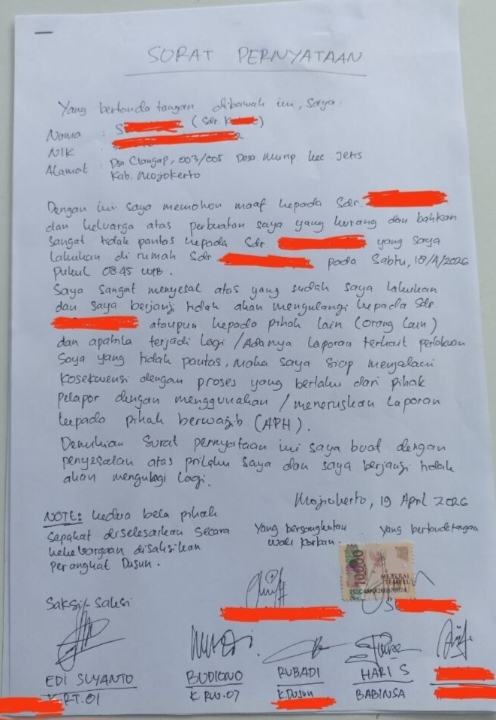 SURAT PERNYATAAN
Yang bertanda tangan dibawah ini, Saya:
Nama : S (Sdr. K )
NIK :
Alamat : Dsn Clangap, 003/005 Desa Murip kec. Jetis
Kab. Mojokerto
Dengan ini saya memohon maaf kepada Sdr.
dan keluarga atas perbuatan saya yang kurang dan bahkan
sangat tidak pantas kepada Sdr. yang saya
lakukan di rumah Sdr pada Sabtu, 18/4/2026
Pukul 08.45 WIB.
Saya sangat menyesal atas yang sudah saya lakukan
dan saya berjanji tidak akan mengulangi kepada Sdr
ataupun kepada pihak lain (orang lain)
dan apabila terjadi lagi / Adanya laporan terkait perlakuan
Saya yang tidak pantas, maka saya siap menjalani
kosekwensi dengan proses yang berlaku dari pihak
pelapor dengan menggunakan / meneruskan laporan
kepada pihak berwajib (APH).
Demikian surat pernyataan ini saya buat dengan
penyesalan atas prilaku saya dan saya berjanji tidak
akan mengulagi lagi.
Mojokerto, 19 April 2026
NOTE: kedua bela pihak
sepakat diselesaikan secara
kekeluargaan disaksikan
perangkat Dusun.
Yang bersangkutan
wali korban.
yang bertandatangan
10000
METERAI
TEMPEL
Saksi-saksi
EDI SUYANTO
K RT.01
BUDIONO
K RW.07
RUBADI
K Dusun
HARI S
BABINSA